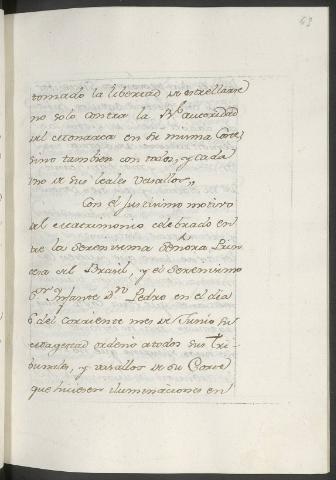 63
tomado la libertad de estrellarse
no solo contra la Rl. autoridad
del Monarca en su misma Corte,
sino tambien con todos, y cada
uno de sus leales vasallos,,
Con el justisimo motivo
del Matrimonio celebrado en
tre la Serenisima Señora Prin
cesa del Brasil, y el Serenisimo
Sor. Infante Dn. Pedro en el dia
6 del corriente mes de Junio su
Magestad ordenò atodos sus Tri-
bunales, y vasallos de su Corte
que hiciesen iluminaciones en